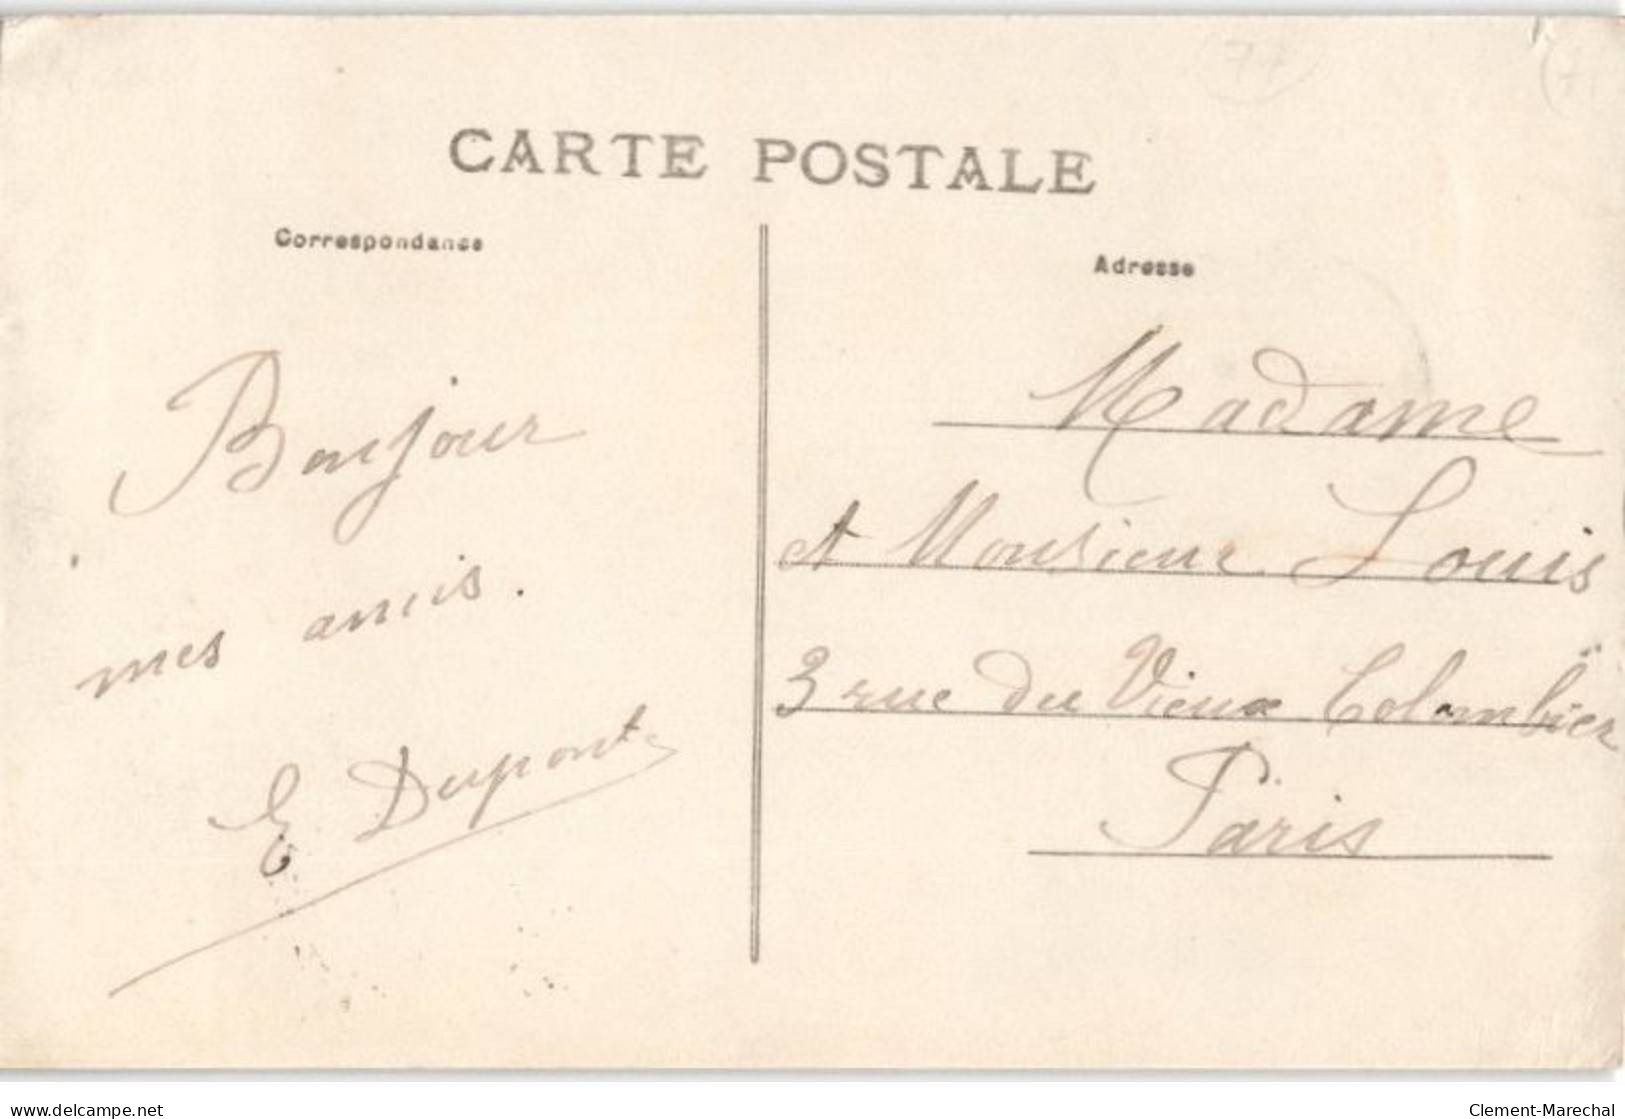 77
CARTE POSTALE
Correspondance
Adresse
Bonjour
mes amis.
E Dupont
Madame
et Monsieur Louis
3 rue du Vieux Colombier
Paris
delcampe.net
Clement-Marechal